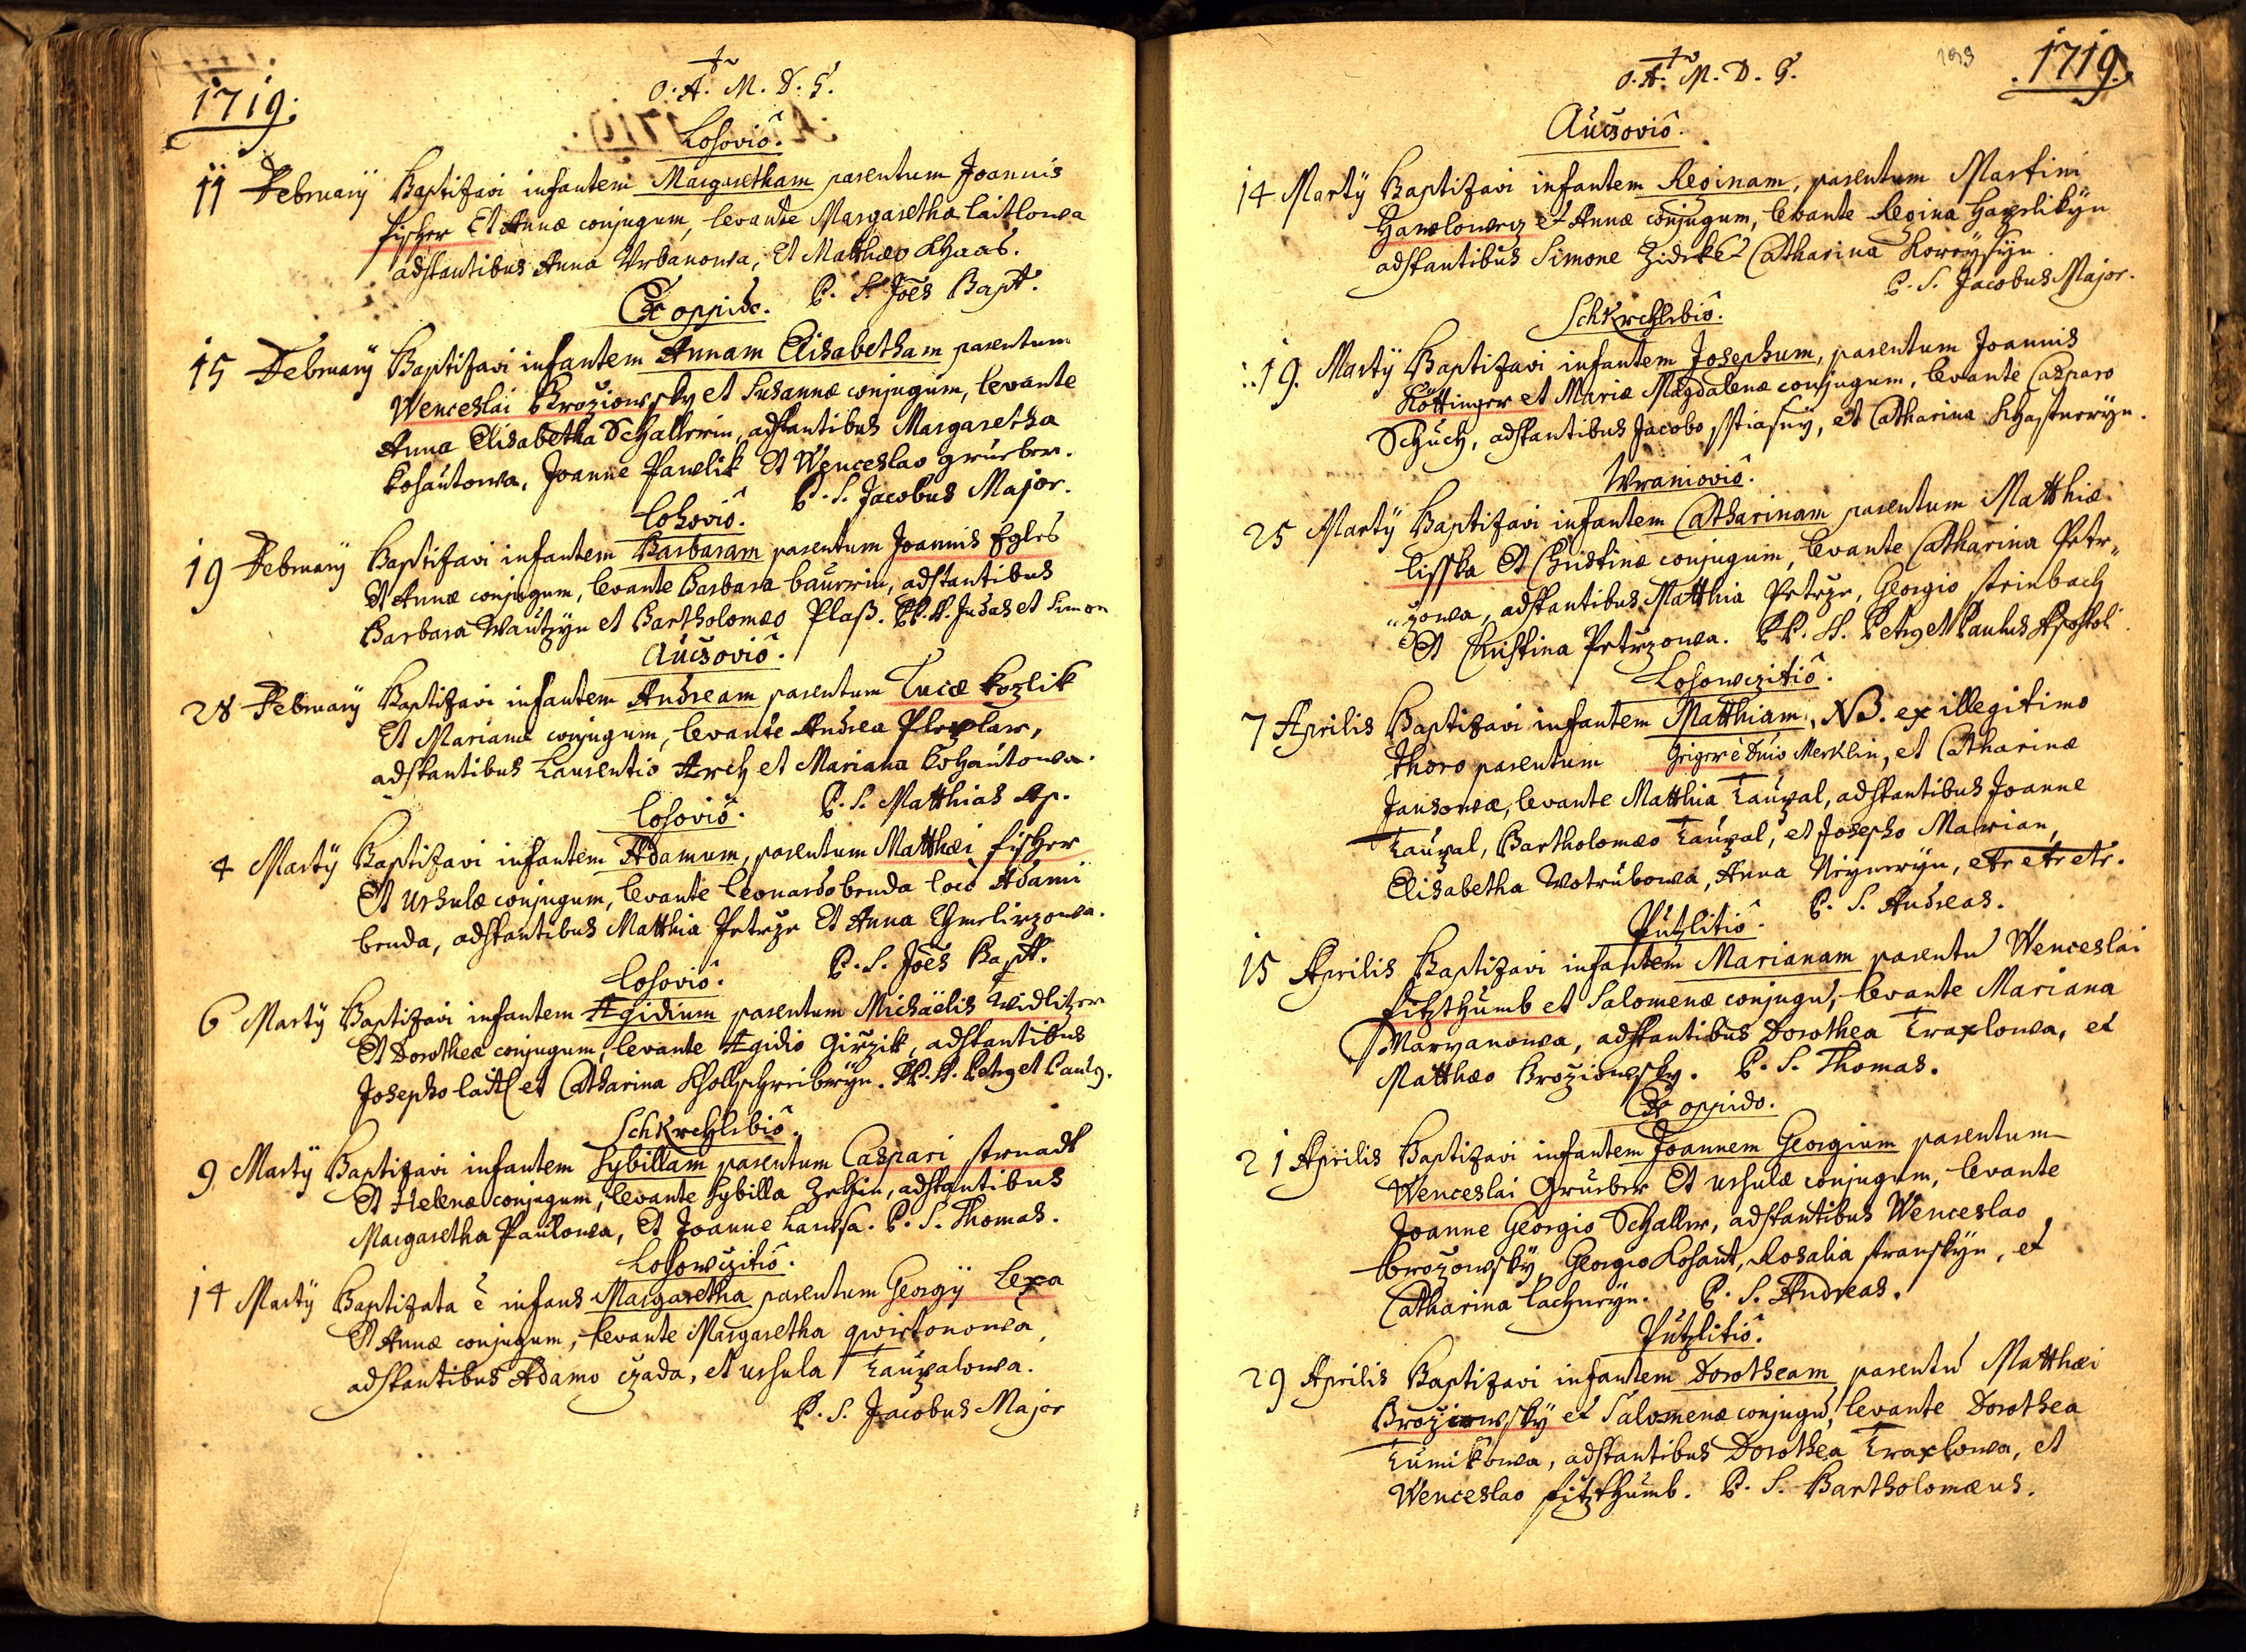 1719.
O. A. M. D. G.
Losoviô.
11 Februarÿ Baptizavi infantem Margaretham parentum Joannis
fischer Et Annæ conjugum, levante Margaretha laitlowa
adstantibus Anna Urbanowa, Et Matthæo Khaas.
P. S. Joês Bapt.
Ex oppido.
15 Februarÿ Baptizavi infantem Annam Elisabetham parentum
Wenceslai Broziowsky et Susannæ conjugum, levante
Anna Elisabetha Schallerin, adstantibus Margaretha
Kohautowa, Joanne Pawlik Et Wenceslao grueber.
P. S. Jacobus Major.
Lohoviô.
19 Februarÿ Baptizavi infantem Barbaram parentum Joannis Egles
Et Annæ conjugum, levante Barbara baurrin, adstantibus
Barbara Wautzyn et Bartholomæo Plaß. PP. SS. Judas et Simon
Aucsoviô.
28 Februarÿ Baptizavi infantem Andream parentum Lucæ Kozlik
Et Marianæ conjugum, levante Andrea Plexlar,
adstantibus Laurentio Arch et Mariana Kohautowa.
P. S. Matthias Ap.
Losoviô.
4 Martÿ Baptizavi infantem Adamum, parentum Matthæi fischer
Et Ursulæ conjugum, levante leonardo benda loco Adami
benda, adstantibus Matthia Petrze Et Anna Chmelirzowa.
P. S. Joês Bapt.
Losoviô.
6 Martÿ Baptizavi infantem Ægidium parentum Michaëlis Widlitzer
Et Dorotheæ conjugum, levante Ægidio Girzik, adstantibus
Josepho laitl et Catharina Khollschreiberyn. PP. SS. Petrg et Paulg.
Schkrchlebiô.
9 Martÿ Baptizavi infantem Sybillam parentum Caspari strnadt
Et Helenæ conjugum, levante Sybilla Zehin, adstantibus
Margaretha Paulowa, Et Joanne Hansa. P. S. Thomas.
Losowczitiô.
14 Martÿ Baptizata ê infans Margaretha parentum Georgÿ Lexa
Et Annæ conjugum, levante Margaretha qwirtonowa,
adstantibus Adamo czada, et Ursula Tauxalowa.
P. S. Jacobus Major
O. A. M. D. G.
1719.
Aucsoviô.
14 Martÿ Baptizavi infantem Reginam, parentum Martini
Hawlowecz et Annæ conjugum, levante Regina Haxelikyn
adstantibus Simone Zidek et Catharina Korcysyn.
P. S. Jacobus Major.
Schkrchlebiô.
19. Martÿ Baptizavi infantem Josephum, parentum Joannis
Röttinger et Mariæ Magdalenæ conjugum, levante Casparo
Schuch, adstantibus Jacobo sstiasny, et Catharina Khastneryn.
Wranioviô.
25 Martÿ Baptizavi infantem Catharinam parentum Matthiæ
lisska Et Christinæ conjugum, levante Catharina Petr„
„zowa, adstantibus Matthia Petrze, Georgio steinbach
Et Christina Petrzowa. PP. SS. Petrg et Paulus Apostoli.
Losowczitiô.
7 Aprilis Baptizavi infantem Matthiam, NB. ex illegitimo
thoro parentum Griger è Dnio Merklin, et Catharinæ
Jansowæ, levante Matthia Tauxal, adstantibus Joanne
Tauxal, Bartholomæo Tauxal, et Josepho Marian,
Elisabetha Wotrubowa, Anna Neyneryn, etc etc etc.
P. S. Andreas.
Putzlitiô.
15 Aprilis Baptizavi infantem Marianam parentu Wenceslai
fitzthumb et Salomenæ conjugu, levante Mariana
Marxanowa, adstantibus Dorothea Traxlowa, et
Matthæo Broziowsky. P. S. Thomas.
Ex oppido.
21 Aprilis Baptizavi infantem Joannem Georgium parentum
Wenceslai Grueber Et Ursulæ conjugum, levante
Joanne Georgio Schaller, adstantibus Wenceslao
brozowsky, Georgio Kohaut, Rosalia stranskyn, et
Catharina lachneyn. P. S. Andreas.
Putzlitiô.
29 Aprilis Baptizavi infantem Dorotheam parentu Matthæi
Broziowskÿ et Salomenæ conjugu, levante Dorothea
Tumikowa, adstantibus Dorothea Traxlowa, et
Wenceslao fitzthumb. P. S. Bartholomæus.